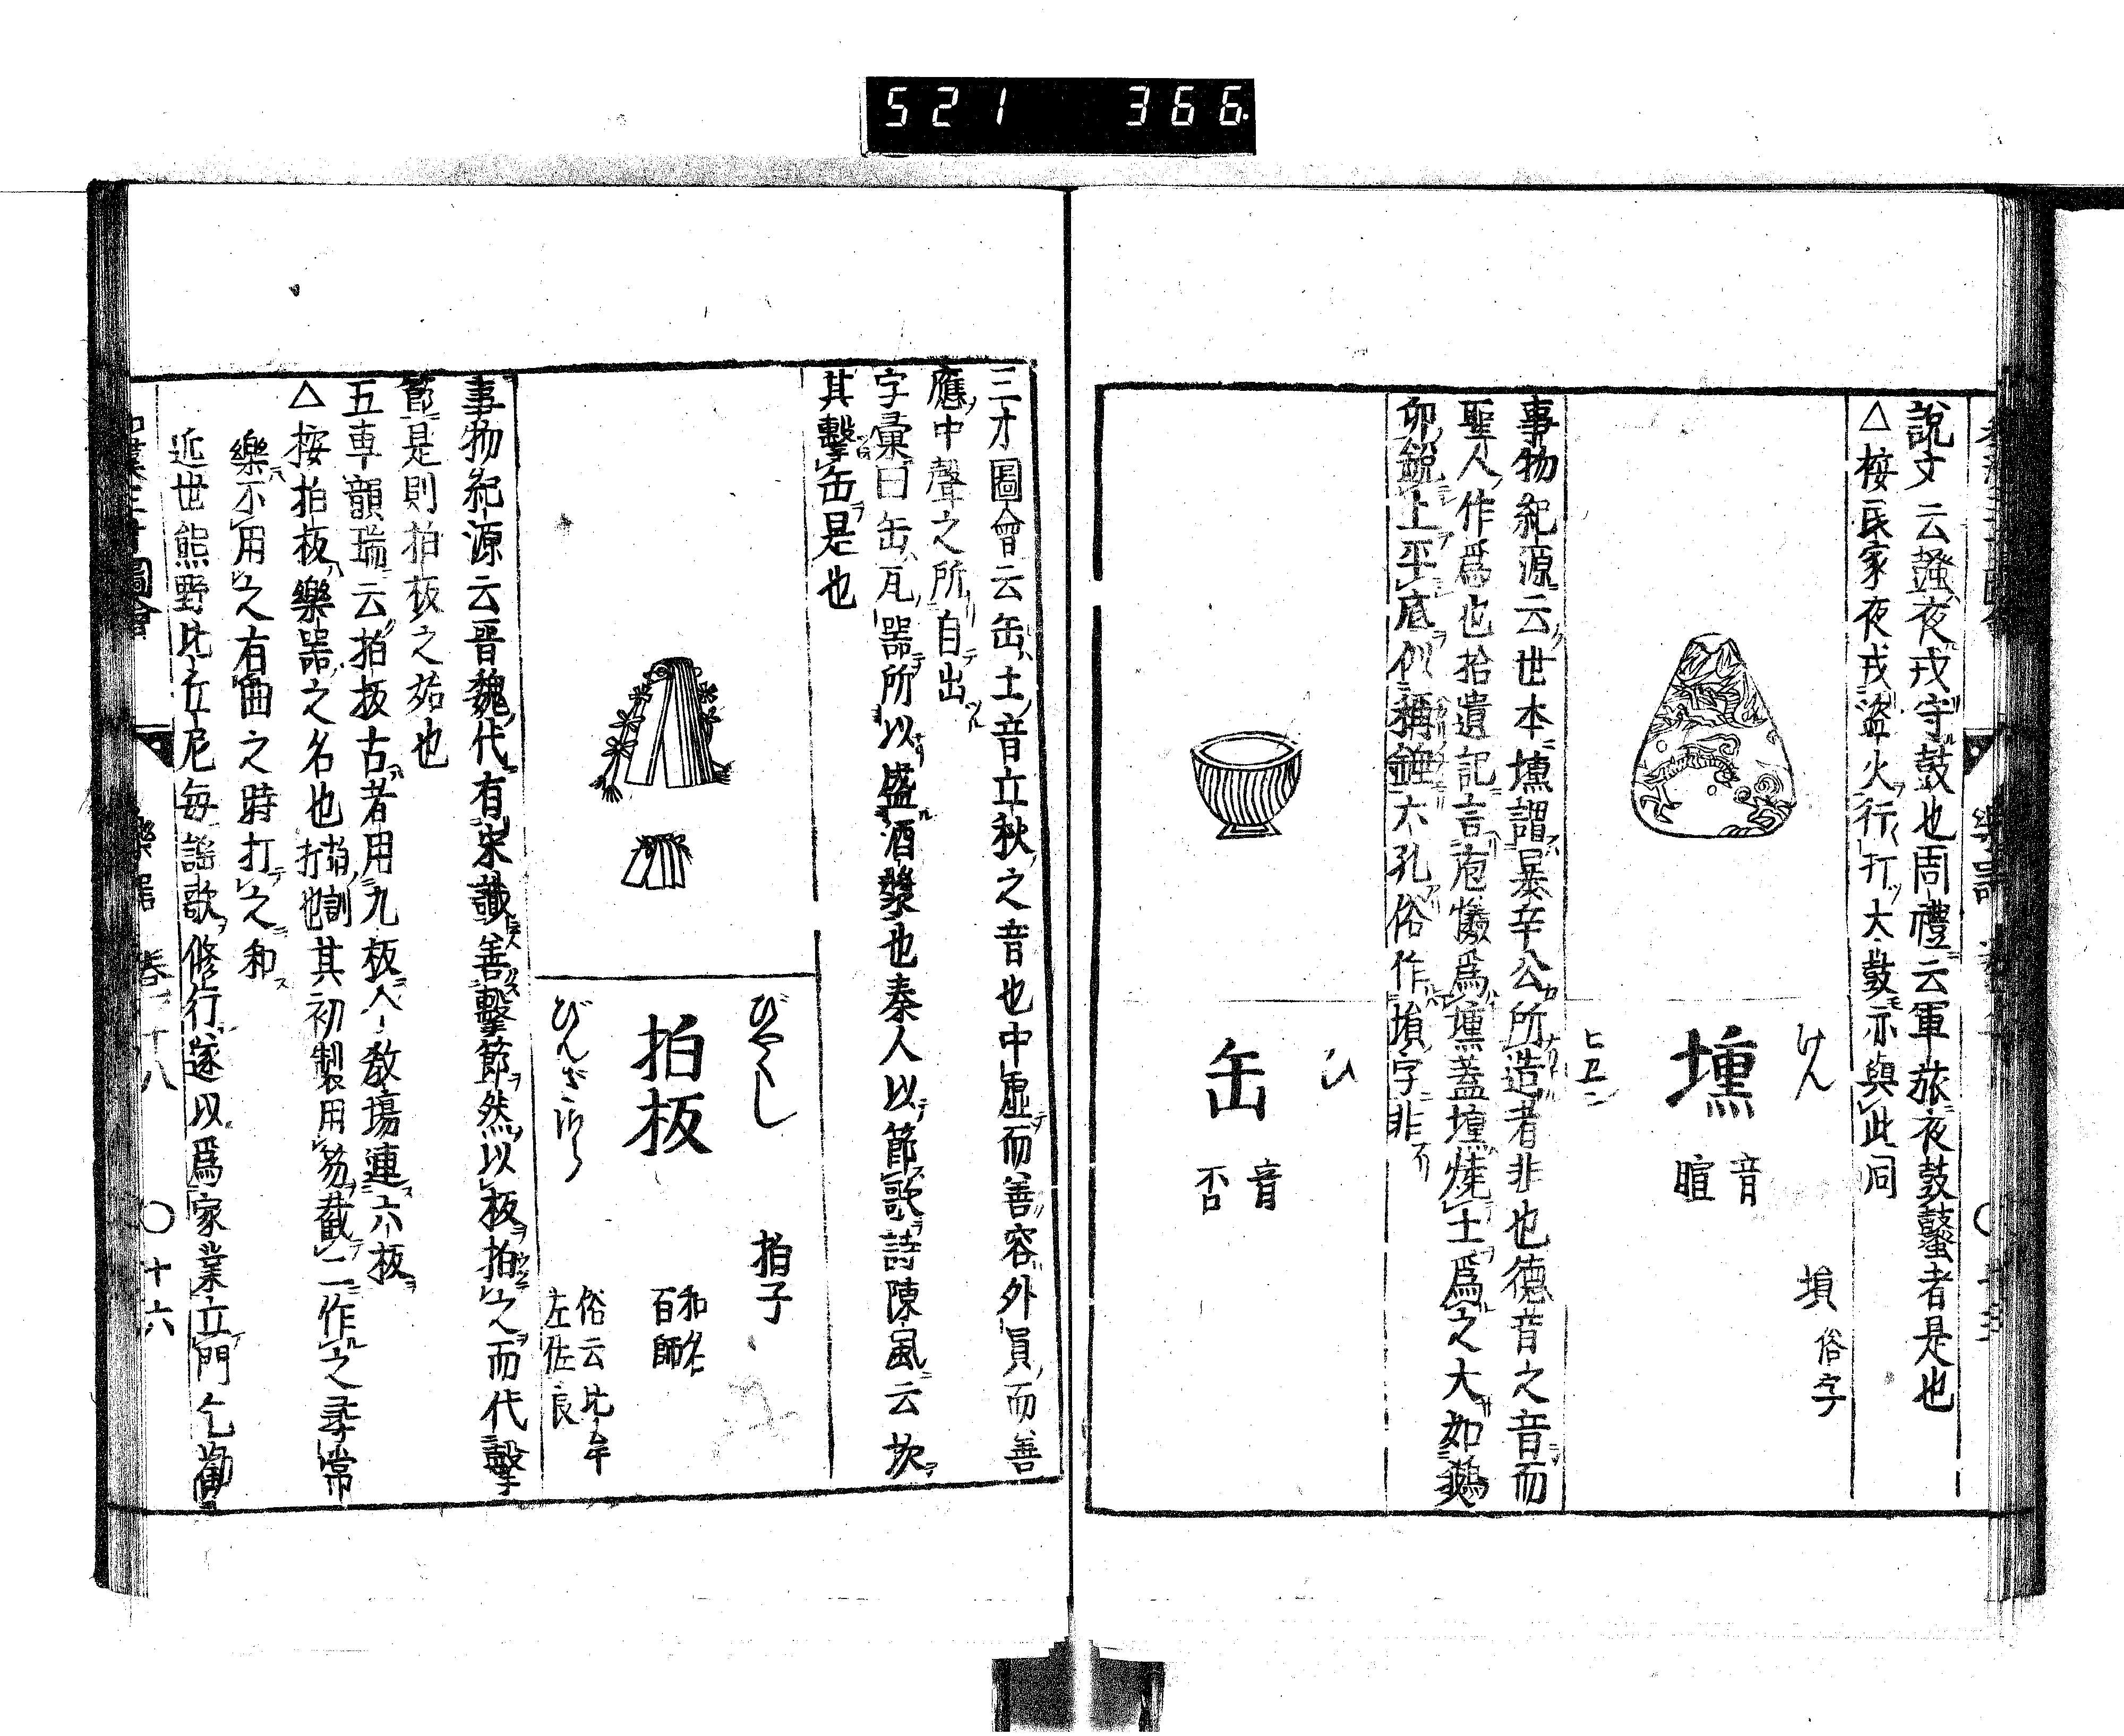 521 366.
說文云鼜夜戎守鼓也周禮云軍旅夜鼓鼜者是也
△桉民家夜戎盜火行打大鼓亦與此同
けん
壎
音暄
ヒヱン
塤 俗字
事物紀源云世本壎謂暴辛公所造者非也德音之音而
聖人作爲也拾遺記言庖犧爲壎蓋壎燒土爲之大如鵝
卵銳上平底似稱錘六孔俗作塤字非
ひ
缶
音否
三才圖會云缶土音立秋之音也中虛而善容外員而善
應中聲之所自出
字彙曰缶瓦器所以盛酒漿也秦人以節歌詩陳風云坎
其擊缶是也
びやくし
拍板
びんざさら
拍子
和名百師
俗云比牟
左佐良
事物紀源云晉魏代有宋識善擊節然以板拍之而代擊
節是則拍板之始也
五車韻瑞云拍板古者用九板今教塲連六板
△桉拍板樂器之名也拍訓打也其初製用笏截二作之尋常
樂不用之右曲之時打之和
近世熊野比丘尼每謠歌修行遂以爲家業立門乞勸
圖會
樂器
卷十八
〇十六